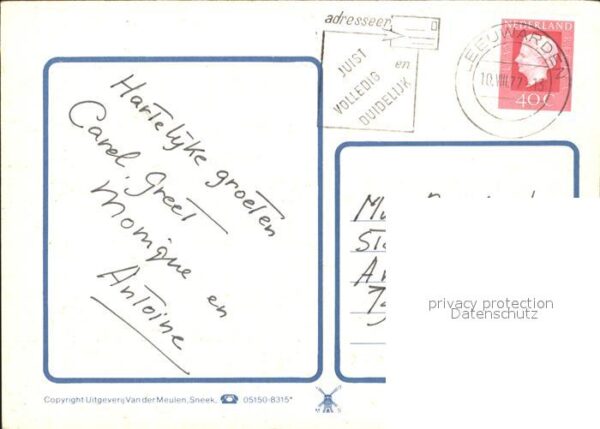 adresseer
JUIST en
VOLLEDIG
DUIDELIJK
LEEUWARDEN
10.VIII.77.-18
NEDERLAND
40c
Hartelijke groeten
Carel, Greet
Monique en
Antoine
privacy protection
Datenschutz
Copyright Uitgeverij Van der Meulen, Sneek. ☎ 05150-8315*